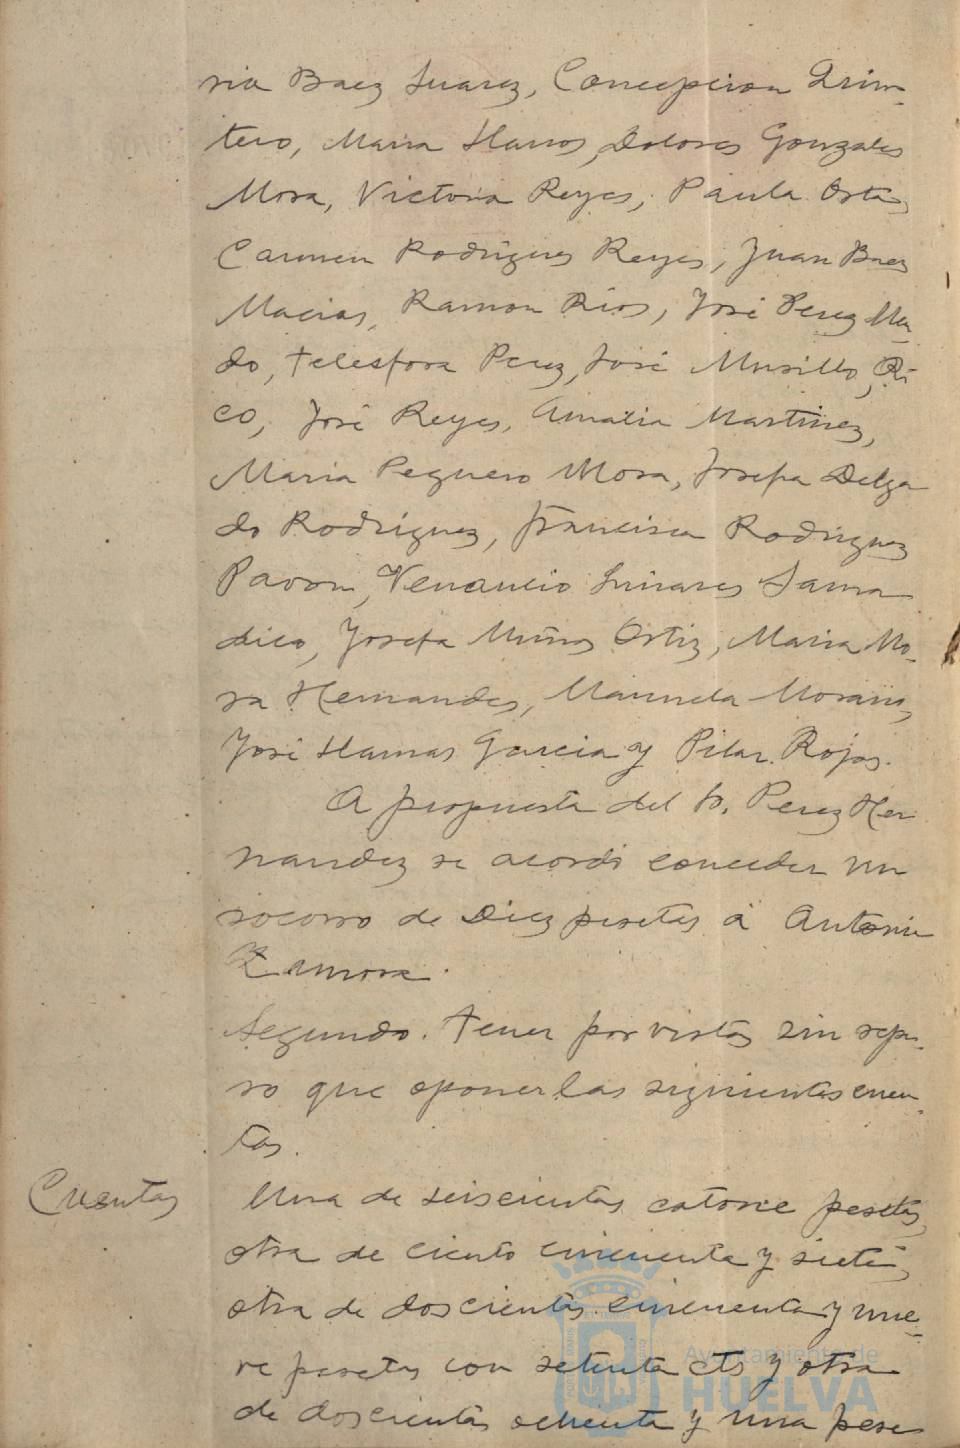 ria Baez Suarez, Concepcion Quin-
tero, Maria Llanos, Dolores Gonzales
Mora, Victoria Reyes, Paula Orta,
Carmen Rodrigues Reyes, Juan Baez
Macias, Ramon Rios, José Perez Men-
do, Telesfora Perez, José Murillo, Ri-
co, José Reyes, Amalia Martinez,
Maria Peguero Mora, Josefa Delga
do Rodriguez, Francisca Rodriguez
Pavon, Venancio Linares Sama
dico, Josefa Muños Ortiz, Maria Mo-
ra Hernandes, Manuela Morano,
José Llamas Garcia y Pilar Rojas.
A propuesta del Sr. Perez Her
nandez se acordó conceder un
socorro de Diez pesetas á Antonio
Zamora.
Segundo. Tener por vistas sin repa-
ro que oponer las siguientes cuen-
tas.
Cuentas
Una de seiscientas catorce pesetas,
otra de ciento cincuenta y siete,
otra de doscientas cincuenta y nue-
ve pesetas con setenta cts y otra
de doscientas ochenta y una pese
Ayuntamiento de
HUELVA